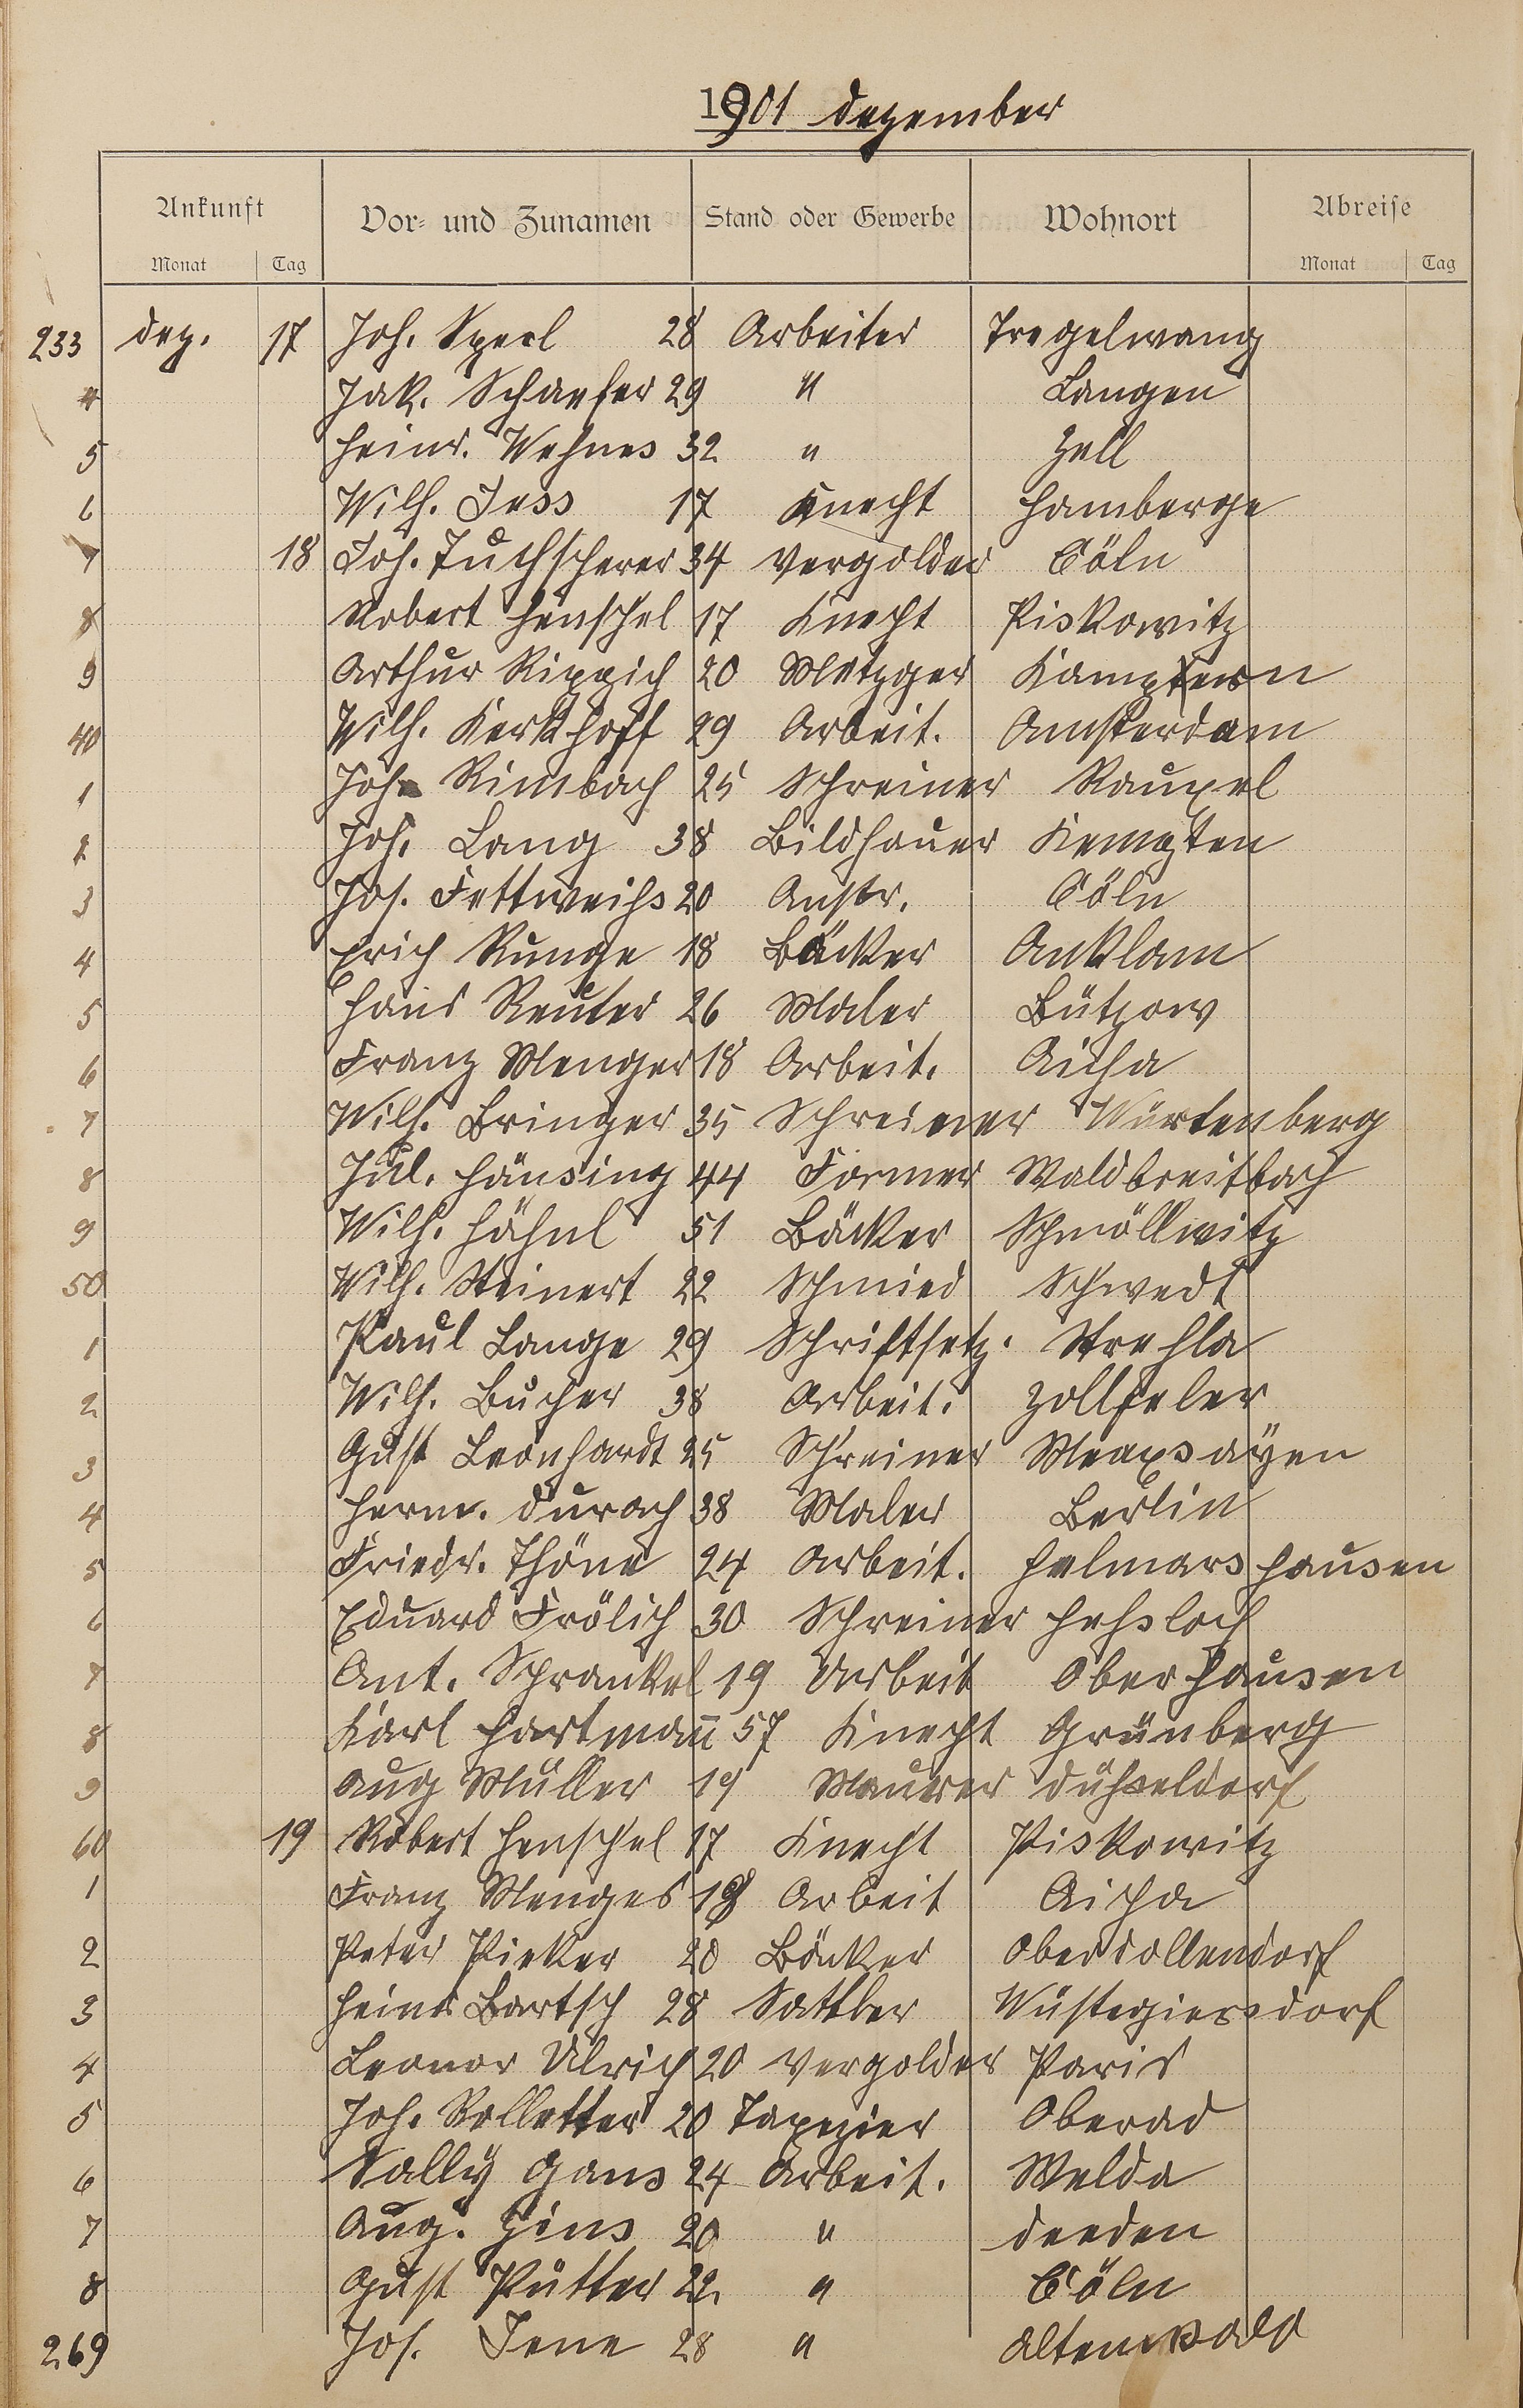 1901 Dezember
Ankunft Vor- und Zunamen Stand oder Gewerbe Wohnort Abreise
Monat Tag Monat Tag
233 Dez. 17 Joh. Sperl 28 Arbeiter Tregelwang
4 Jak. Schaefer 29 " Langen
5 Heinr. Wehnes 32 " Zell
6 Wilh. Jess 17 Knecht Hamberge
7 18 Joh. Tuchscherer 34 Vergolder Cöln
8 Robert Henschel 17 Knecht Piskowitz
9 Arthur Rippich 20 Metzger
40 Wilh. Kerkhoff 29 Arbeit. Amsterdam
1 Joh. Rimbach 25 Schreiner Rauxel
2 Joh. Lang 38 Bildhauer Kempten
3 Jos. Fettweihs 20 Anstr. Cöln
4 Erich Runge 18 Bäcker Anklam
5 Hans Reuter 26 Maler Bützow
6 Franz Menger 18 Arbeit. Aicha
7 Wilh. Bringer 35 Schreiner Würtenberg
8 Jul. Häusing 44 Former Waldbreitbach
9 Wilh. Hähnl 51 Bäcker Schmöllwitz
50 Wilh. Steinert 22 Schmied Schwedt
1 Paul Lange 29 Schriftsetz. Strehla
2 Wilh. Bucher 38 Arbeit. Zollfeler
3 Gust Leonhardt 25 Schreiner
4 Herm. Durach 38 Maler Berlin
5 Friedr. Thöne 24 Arbeit. Helmarshausen
6 Eduard Frölich 30 Schreiner Hehsloch
7 Ant. Schrankel 19 Arbeit Oberhausen
8 Karl Hartman̄ 57 Knecht Grünberg
9 Aug Müller 19 Maurer Dühseldorf
60 19 Robert Henschel 17 Knecht Piskowitz
1 Franz Menges 18 Arbeit Aicha
2 Peter Pieker 20 Bäcker Oberdollendorf
3 Heinr Bartsch 28 Sattler Wüstegiersdorf
4 Leonor Ulrich 20 Vergolder Paris
5 Joh. Rolletter 20 Tapezier Oberad
6 Sally Gans 24 Arbeit. Welda
7 Aug. Zins 20 " Dreden
8 Gust Pütter 22 " Cöln
269 Jos. Jene 28 " Altenwald